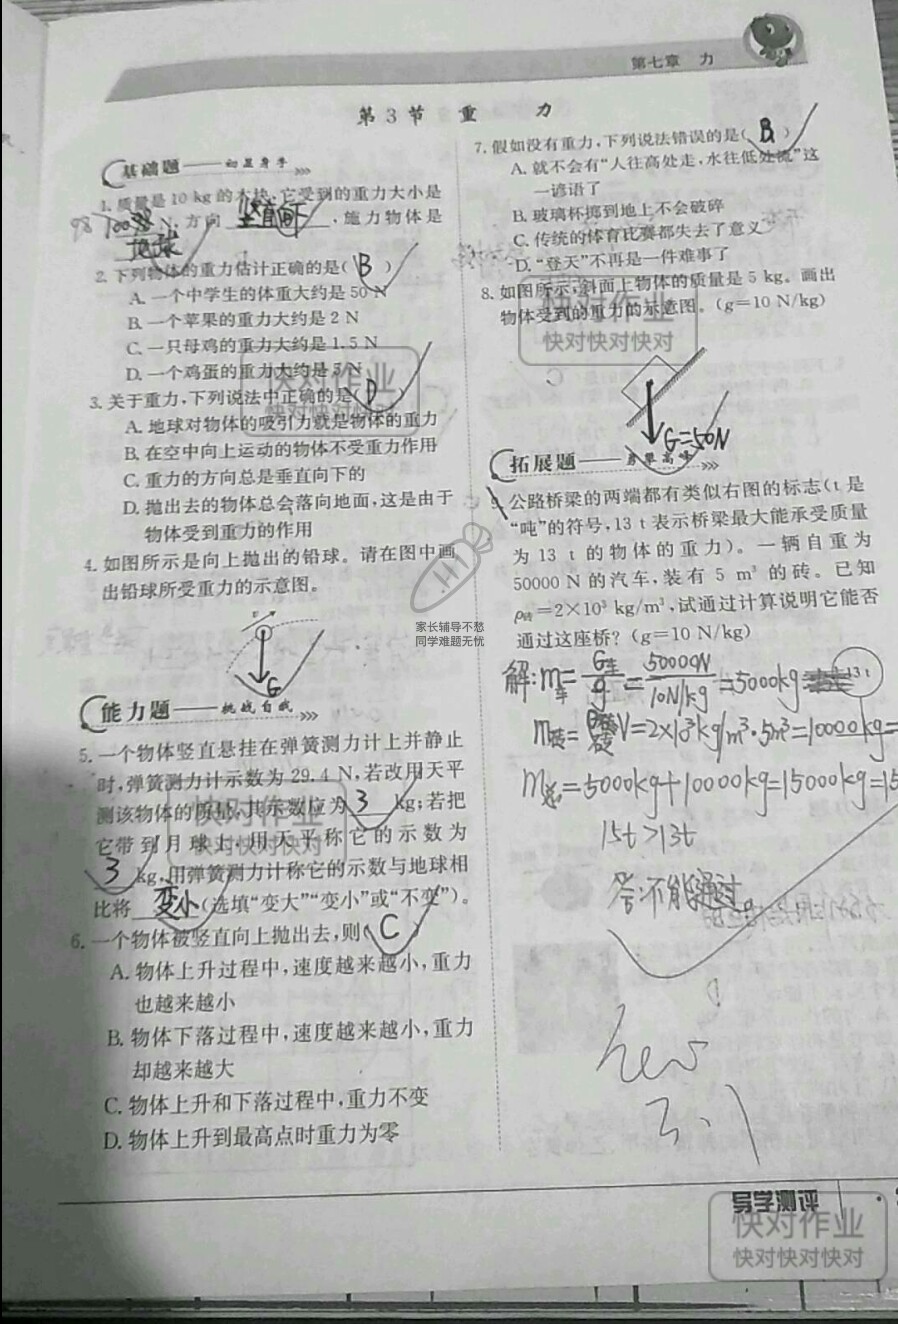 第七章 力
第3节 重 力
基础题——初显身手
1. 质量是10 kg的木块,它受到的重力大小是
98 100 N, 方向 竖直向下 , 施力物体是
地球
2. 下列物体的重力估计正确的是( B )
A. 一个中学生的体重大约是50 N
B. 一个苹果的重力大约是2 N
C. 一只母鸡的重力大约是1.5 N
D. 一个鸡蛋的重力大约是5 N
3. 关于重力,下列说法中正确的是( D )
A. 地球对物体的吸引力就是物体的重力
B. 在空中向上运动的物体不受重力作用
C. 重力的方向总是垂直向下的
D. 抛出去的物体总会落向地面,这是由于
物体受到重力的作用
4. 如图所示是向上抛出的铅球。请在图中画
出铅球所受重力的示意图。
v
G
能力题——挑战自我
5. 一个物体竖直悬挂在弹簧测力计上并静止
时,弹簧测力计示数为29.4 N,若改用天平
测该物体的质量,其示数应为 3 kg;若把
它带到月球上,用天平称它的示数为
3 kg,用弹簧测力计称它的示数与地球相
比将 变小 (选填“变大”“变小”或“不变”)。
6. 一个物体被竖直向上抛出去,则( C )
A. 物体上升过程中,速度越来越小,重力
也越来越小
B. 物体下落过程中,速度越来越小,重力
却越来越大
C. 物体上升和下落过程中,重力不变
D. 物体上升到最高点时重力为零
7. 假如没有重力,下列说法错误的是( B )
A. 就不会有“人往高处走,水往低处流”这
一谚语了
B. 玻璃杯掷到地上不会破碎
C. 传统的体育比赛都失去了意义
D. “登天”不再是一件难事了
8. 如图所示,斜面上物体的质量是5 kg。画出
物体受到的重力的示意图。(g=10 N/kg)
G=50N
拓展题——勇攀高峰
9. 公路桥梁的两端都有类似右图的标志(t是
“吨”的符号,13 t表示桥梁最大能承受质量
为13 t的物体的重力)。一辆自重为
50000 N的汽车,装有5 m³的砖。已知
ρ砖=2×10³ kg/m³,试通过计算说明它能否
通过这座桥?(g=10 N/kg)
13 t
解:m车=G车/g=50000N/10N/kg=5000kg
m砖=ρ砖V=2×10³kg/m³·5m³=10000kg=
m总=5000kg+10000kg=15000kg=15
15t>13t
答:不能通过。
家长辅导不愁
同学难题无忧
快对作业
快对快对快对
快对作业
快对快对快对
快对作业
快对快对快对
导学测评
快对作业
快对快对快对